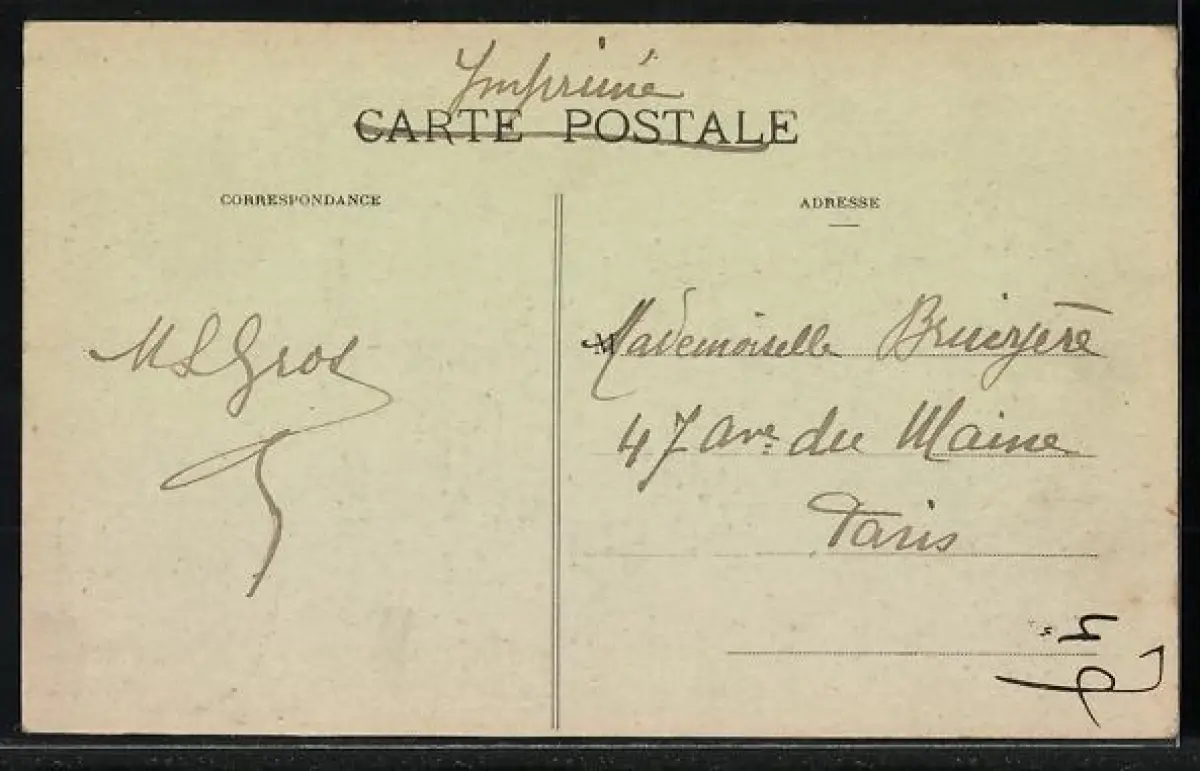 Imprimé
CARTE POSTALE
CORRESPONDANCE
ADRESSE
M L Gros
Mademoiselle Bruyère
47 Ave. du Maine
Paris